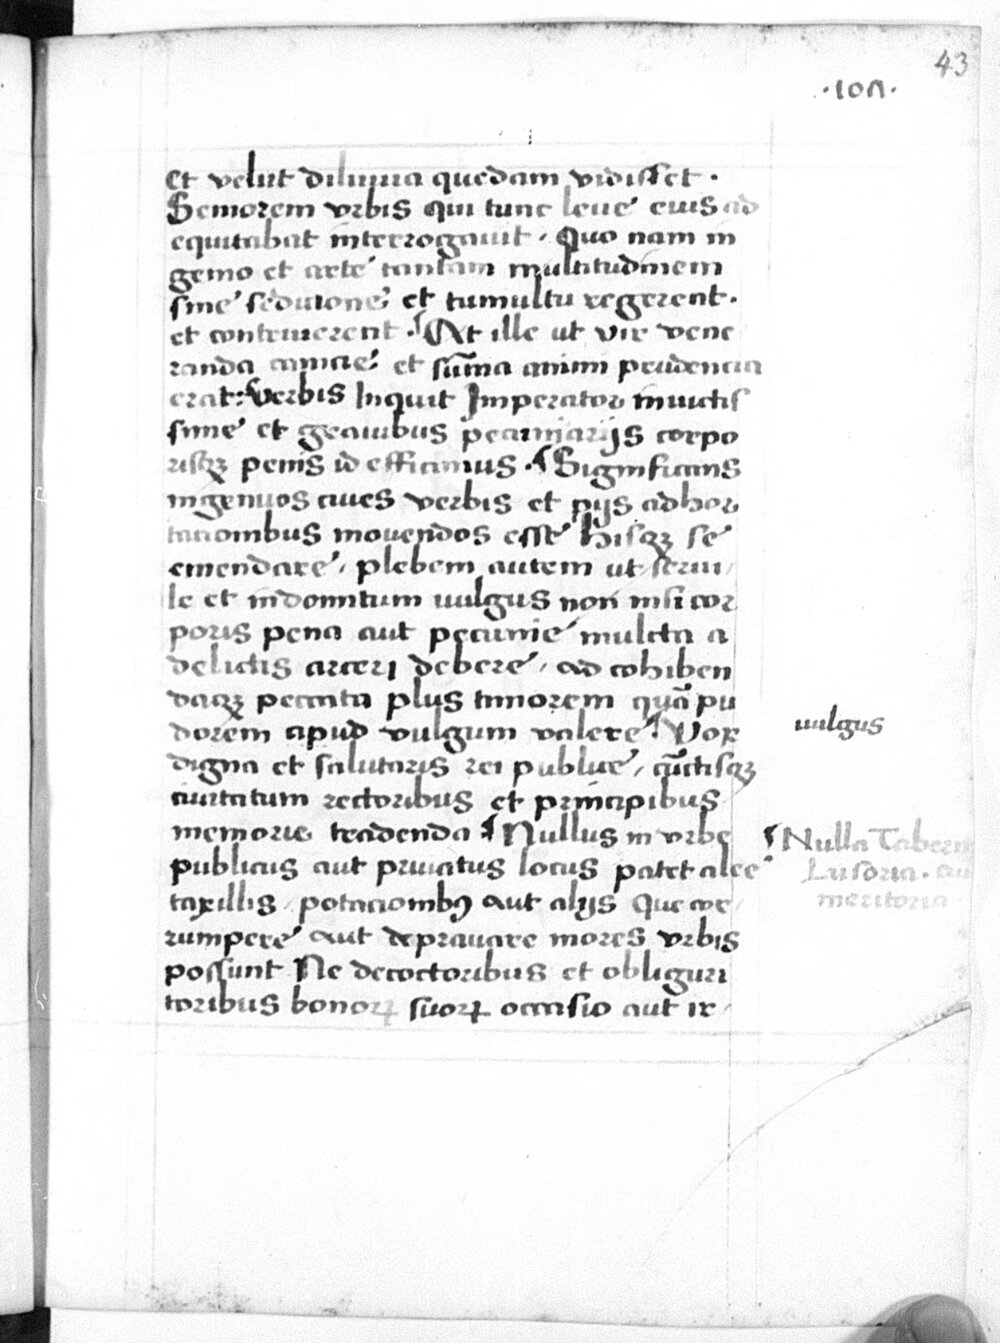 43
·ION·
Et velut diluuia quedam vidisset ·
Seniorem vrbis qui tunc leue eius ad
equitabat interrogauit / Quo nam in
genio et arte tantam multitudinem
sine seditione et tumultu regerent ·
et continerent · At ille ut vir vene
randa canicie et sūma animi prudencia
erat: Verbis Inquit Imperator inuictis
sime et grauibus pecuniarijs corpo
risqꝫ penis id efficimus · Significans
ingenuos ciues verbis et pijs adhor
tacionibus mouendos esse hisqꝫ se
emendare / plebem autem ut serui /
le et indomitum uulgus non nisi cor
poris pena aut pecunie mulcta a
delictis arceri debere / ad cohiben
daqꝫ peccata plus timorem quā pu
dorem apud vulgum valere Vox
digna et salutaris rei publice / cūctisqꝫ
ciuitatum rectoribus et principibus
memorie tradenda Nullus in vrbe
publicus aut priuatus locus patet alee
taxillis / potacionibꝯ aut alijs Que cor /
rumpere aut deprauare mores vrbis
possunt Ne decoctoribus et obliguri
toribus bonoꝝ suoꝝ occasio aut ir /
uulgus
Nulla Tabern
Lusoria · au
meritoria